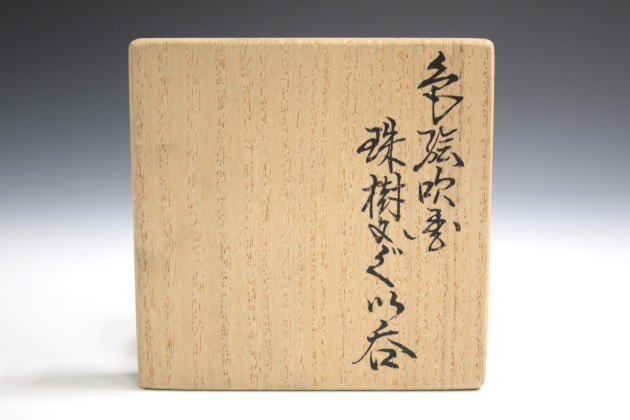 色絵吹墨
珠樹文ぐい呑